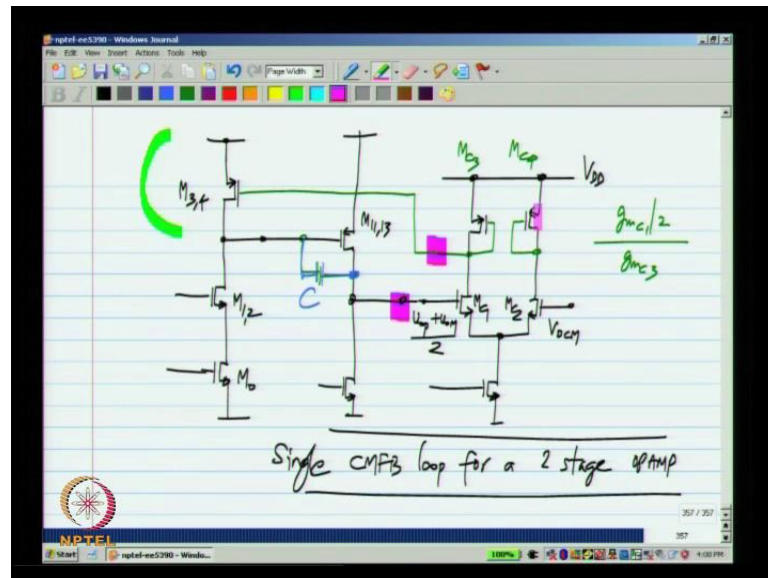 nptel-ee5390 - Windows Journal
File Edit View Insert Actions Tools Help
Page Width
B I
M3,4
M11,13
Mc3
Mc4
VDD
gmc1/2
gmc3
C
M1,2
Mc1
Mc2
VOCM
2
M0
Single CMFB loop for a 2 stage OPAMP
357 / 357
357
NPTEL
Start
nptel-ee5390 - Windo...
100%
4:00 PM